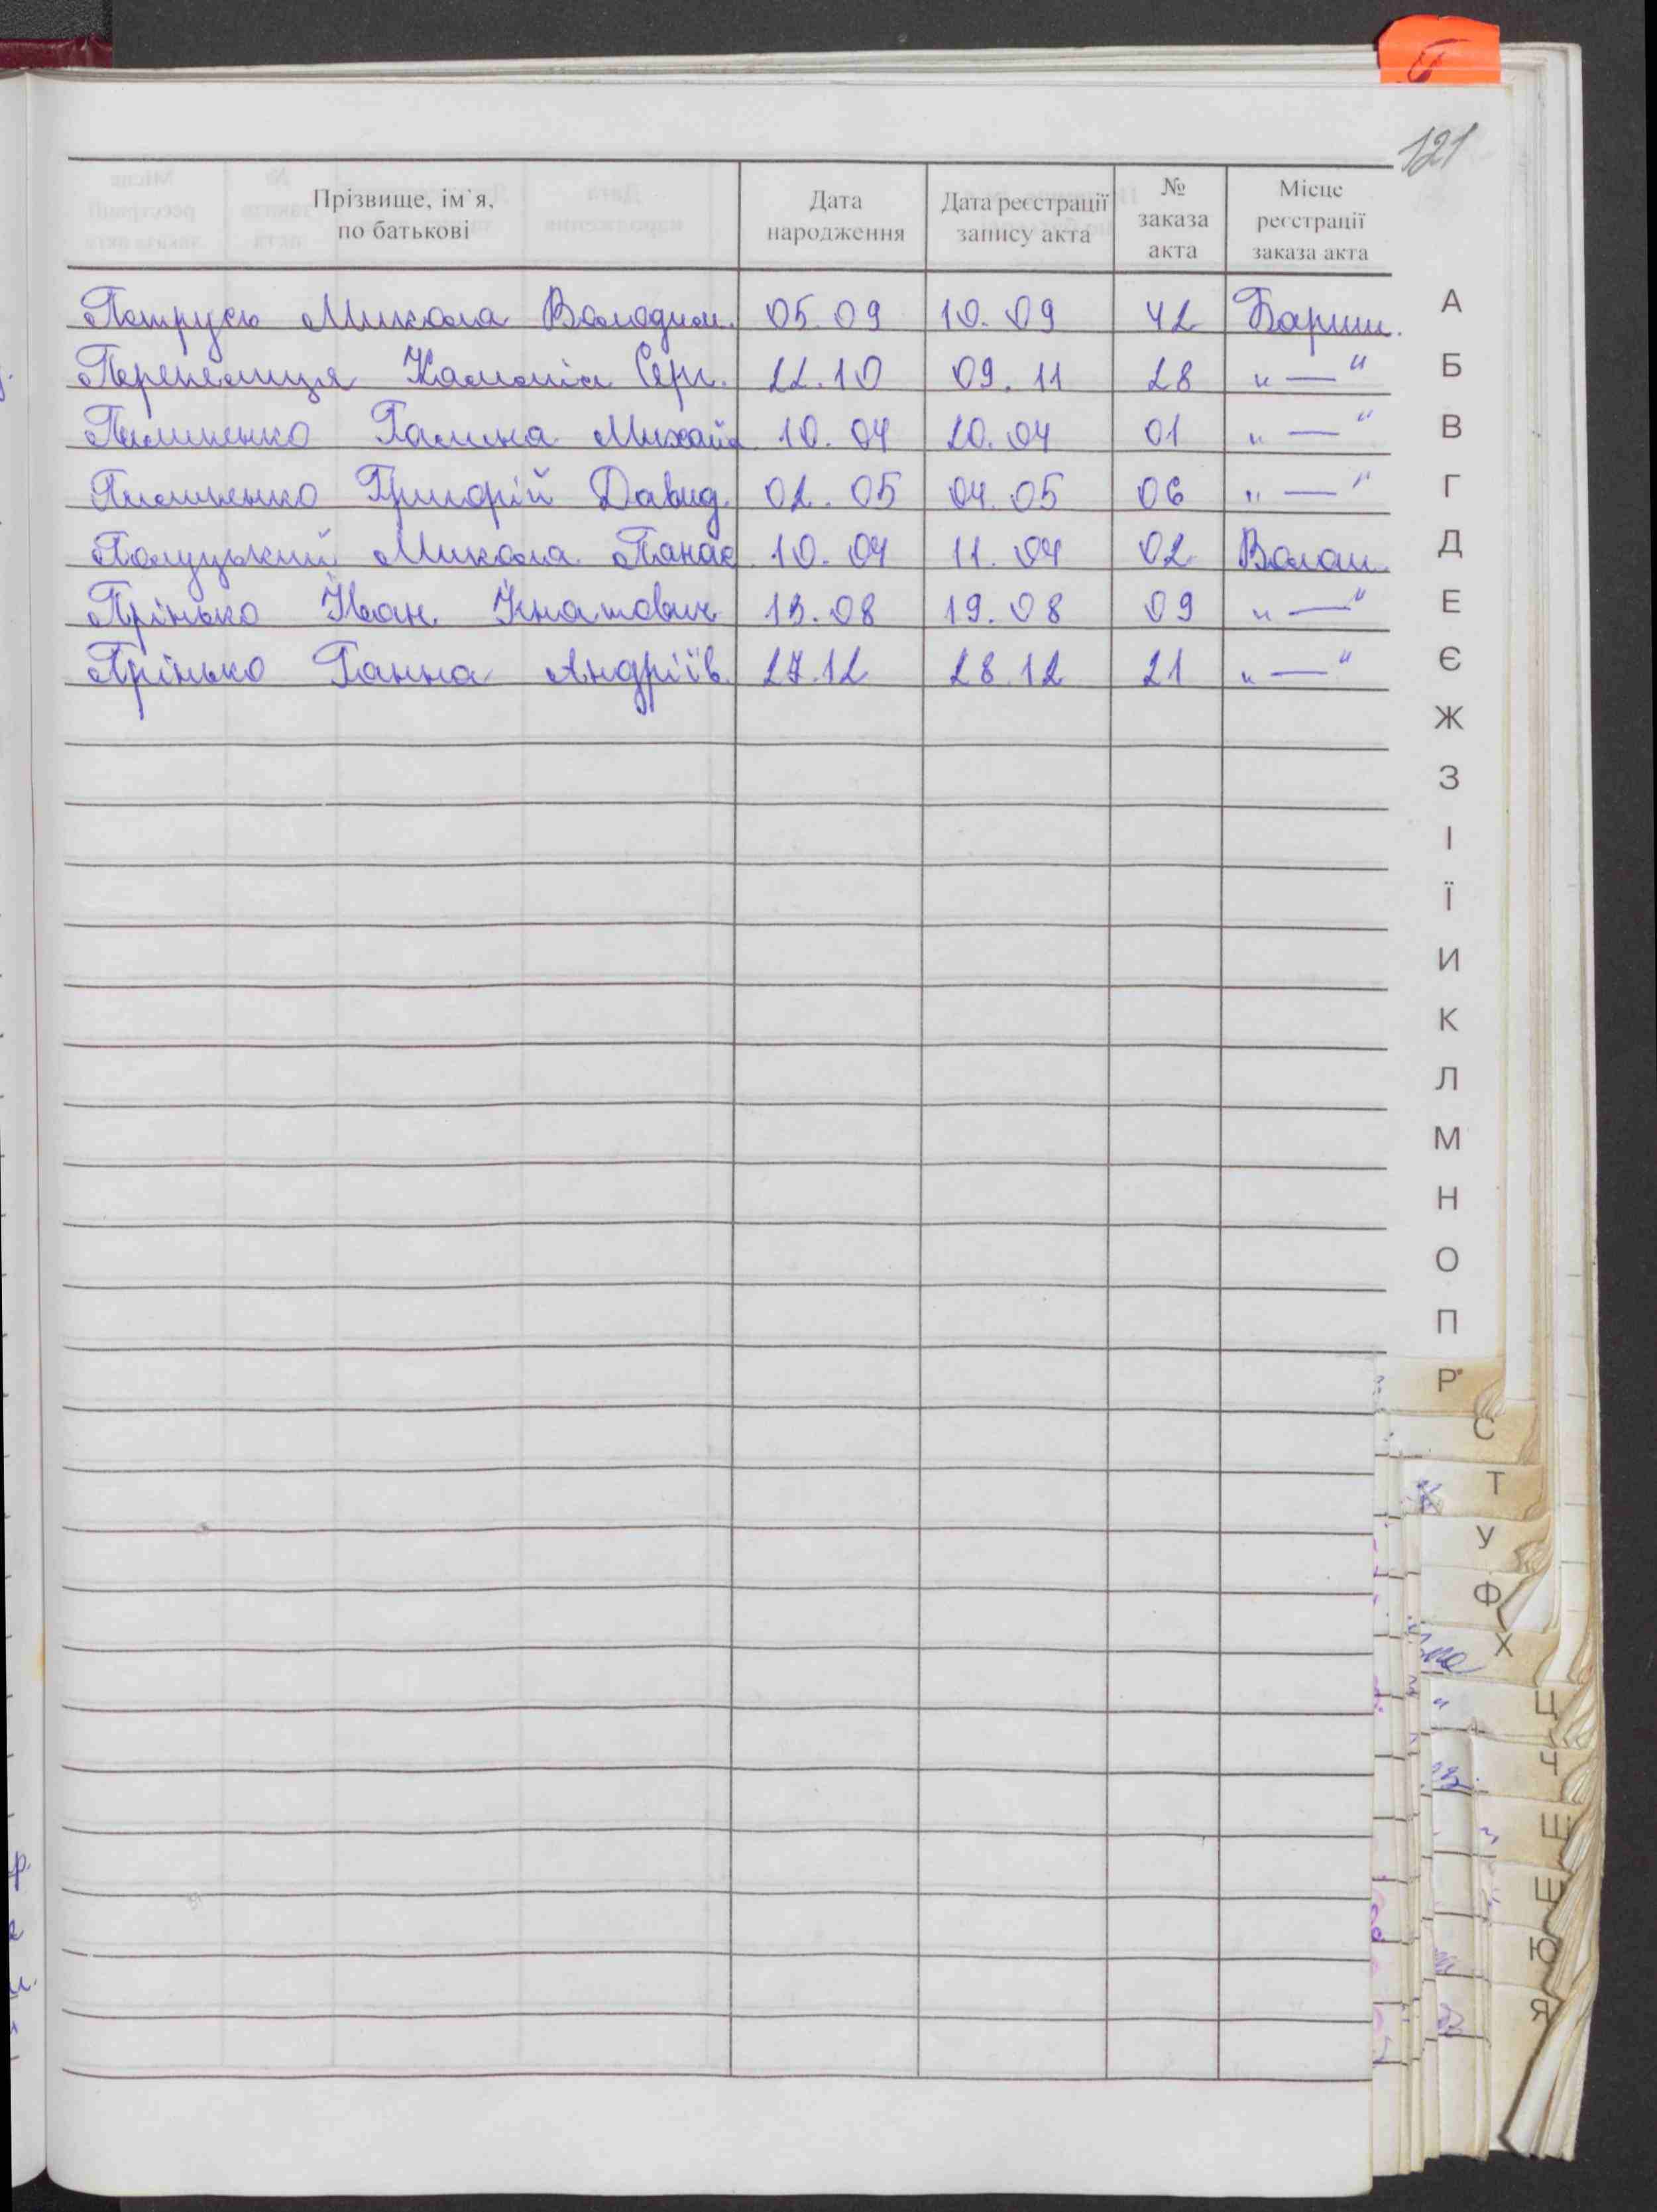 121
Прізвище, ім`я, по батькові Дата народження Дата реєстрації запису акта № заказа акта Місце реєстрації заказа акта
Петрусь Микола Володим. 05.09 10.09 42 Бариш.
Перепелиця Наталія Серг. 22.10 09.11 28 "—"
Пилипенко Галина Михайл 10.04 20.04 01 "—"
Пилипенко Григорій Давид. 02.05 04.05 06 "—"
Полуцький Микола Панас 10.04 11.04 02 Волош.
Прінько Іван Ігнатович 13.08 19.08 09 "—"
Прінько Ганна Андріїв. 27.12 28.12 21 "—"
А
Б
В
Г
Д
Е
Є
Ж
З
І
Ї
И
К
Л
М
Н
О
П
Р
С
Т
У
Ф
Х
Ц
Ч
Ю
Я